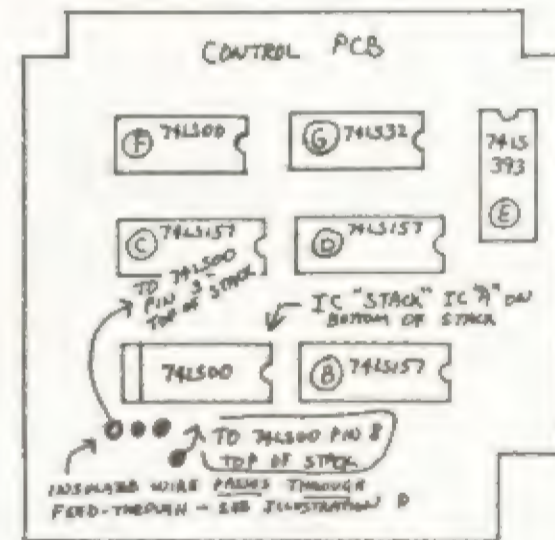 CONTROL PCB
F 74LS00
G 74LS32
74LS
393
E
C 74LS157
D 74LS157
TO 74LS00
PIN 3 -
TOP OF STACK
IC "STACK" IC "A" ON
BOTTOM OF STACK
74LS00
B 74LS157
TO 74LS00 PIN 8
TOP OF STACK
INSULATED WIRE PASSES THROUGH
FEED-THROUGH - SEE ILLUSTRATION D